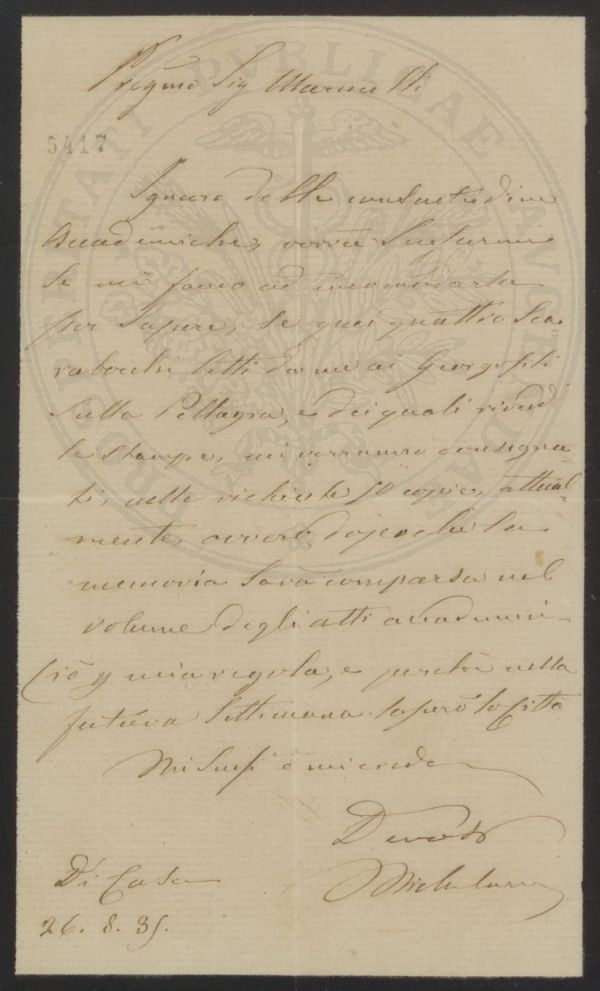 Pregmo Sig Marucelli
PROSPERITATI PUBLICAE AUGENDAE
5417
Ignaro delle consuetudine
Accademiche, vorrà scusarmi
se mi fanno ad incomodarla
per sapere, se quei quattro sca-
rabocchi letti da me ai Georgofili
sulla Pellagra, e dei quali rividi
le stampe, mi verranno consegna-
ti, nelle richieste 50 copie, attual-
mente, ovvero dopo che la
memoria sarà comparsa nel
volume degli atti accademici.
Ciò p mia regola, e perchè nella
futura Settimana saprò
Mi scusi e mi creda
Devoto
Di Casa
26. 8. 35.